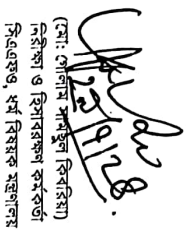 (মো: গোলাম কিবরিয়া)
নিরীক্ষা ও হিসাবরক্ষণ কর্মকর্তা
সিএএফও, ধর্ম বিষয়ক মন্ত্রণালয়